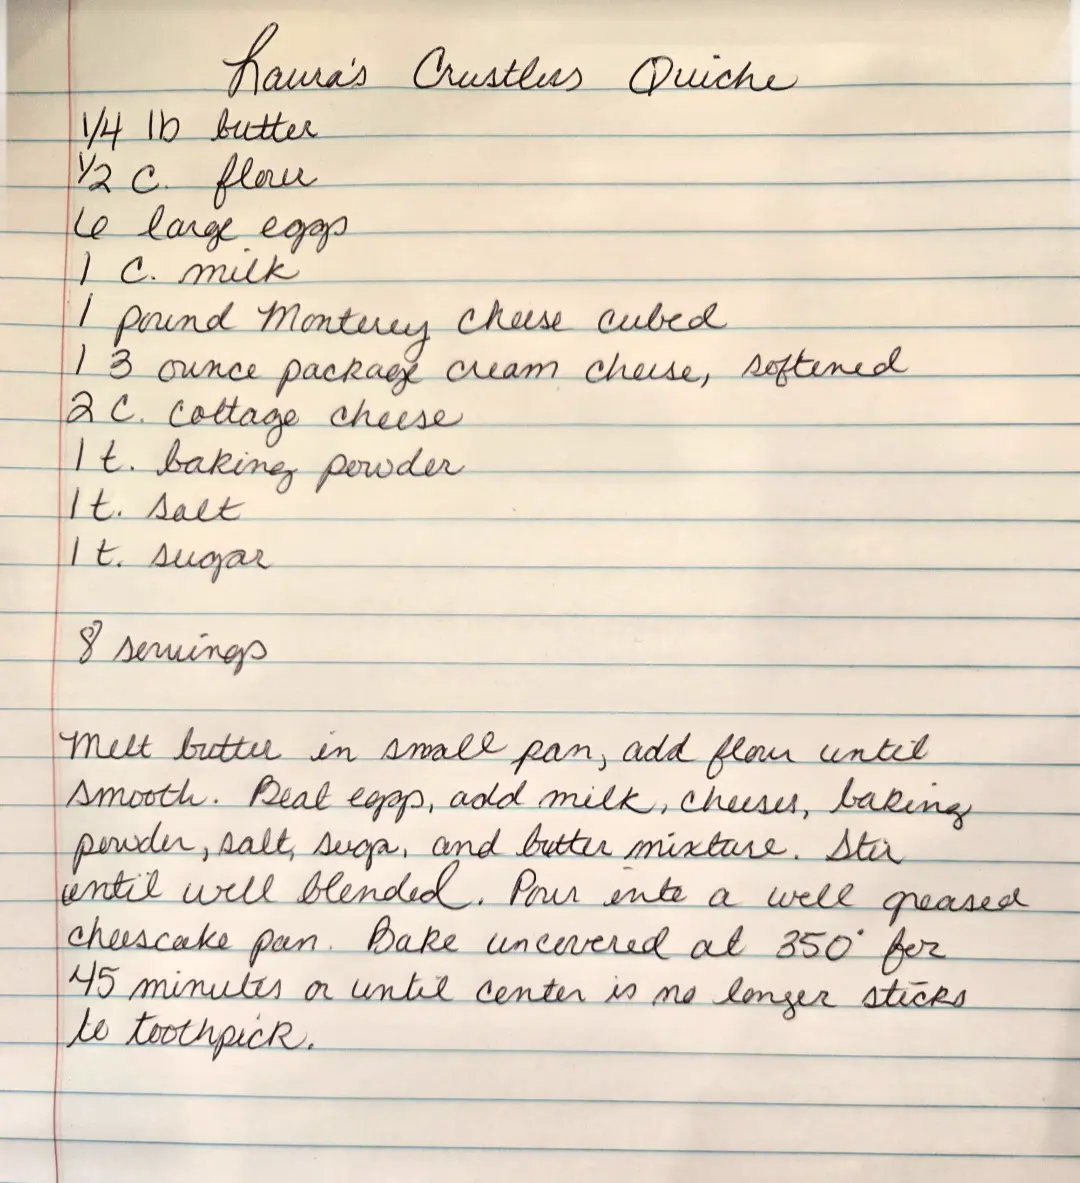 Laura's Crustless Quiche
1/4 lb butter
1/2 c. flour
6 large eggs
1 c. milk
1 pound Monterey cheese cubed
1 3 ounce package cream cheese, softened
2 c. cottage cheese
1 t. baking powder
1 t. salt
1 t. sugar
8 servings
Melt butter in small pan, add flour until
smooth. Beat eggs, add milk, cheeses, baking
powder, salt, suga, and butter mixture. Stir
until well blended. Pour into a well greased
cheescake pan. Bake uncovered at 350° for
45 minutes or until center is no longer sticks
to toothpick.